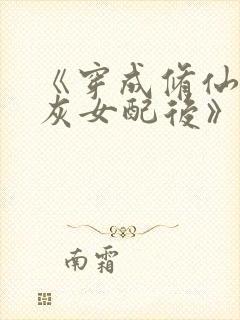 《穿成脩仙
灰女配後》
南霜